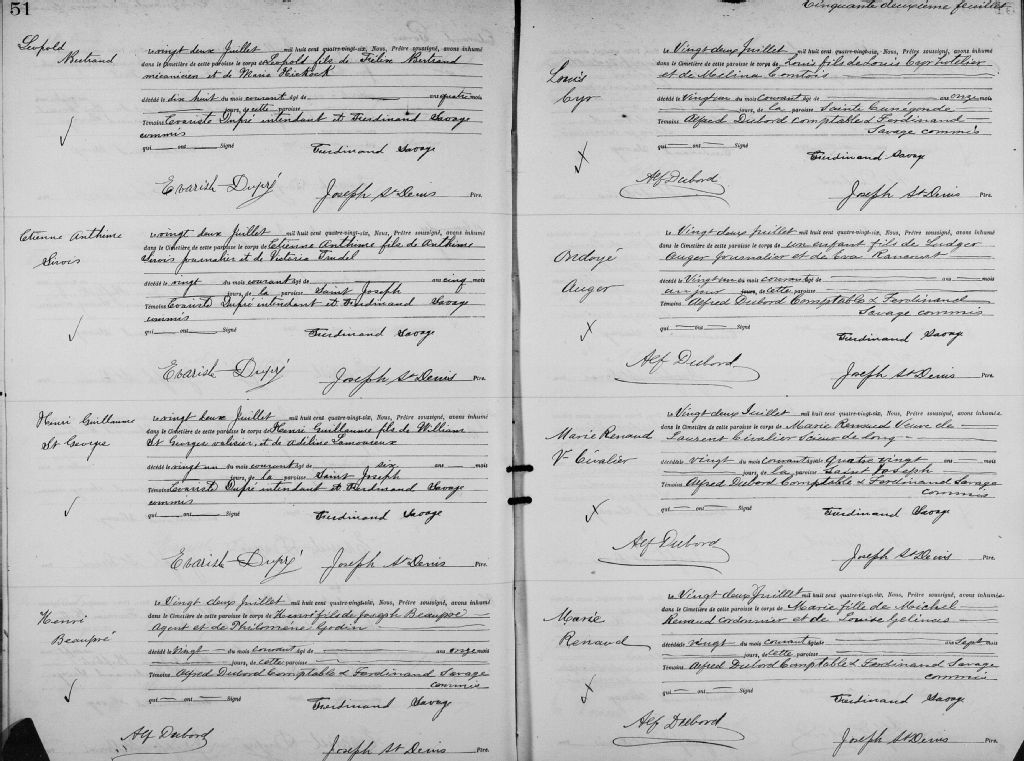 51
Leopold
Bertrand
Le vingt deux Juillet mil huit cent quatre-vingt-six, Nous, Prêtre soussigné, avons inhumé
dans le Cimetière de cette paroisse le corps de Leopold fils de Félix Bertrand
mécanicien et de Marie
décédé le dix huit du mois courant âgé de ans quatre mois
jours, de cette paroisse
Témoins Evariste Dupré intendant et Ferdinand Savage
commis
qui ont Signé
Ferdinand Savage
Evariste Dupré Joseph St Denis Ptre.
Etienne Anthime
Sirois
Le vingt deux Juillet mil huit cent quatre-vingt-six, Nous, Prêtre soussigné, avons inhumé
dans le Cimetière de cette paroisse le corps de Etienne Anthime fils de Anthime
Sirois journalier et de Victoria Trudel
décédé le vingt du mois courant âgé de ans cinq mois
jours, de la paroisse Saint Joseph
Témoins Evariste Dupré intendant et Ferdinand Savage
commis
qui ont Signé
Ferdinand Savage
Evariste Dupré Joseph St Denis Ptre.
Henri Guillaume
St George
Le vingt deux Juillet mil huit cent quatre-vingt-six, Nous, Prêtre soussigné, avons inhumé
dans le Cimetière de cette paroisse le corps de Henri Guillaume fils de William
St Georges valisier, et de Adéline Lamoureux
décédé le vingt un du mois courant âgé de six ans mois
jours, de la paroisse Saint Joseph
Témoins Evariste Dupré intendant et Ferdinand Savage
commis
qui ont Signé
Ferdinand Savage
Evariste Dupré Joseph St Denis Ptre.
Henri
Beaupré
Le Vingt deux Juillet mil huit cent quatre-vingt-six, Nous, Prêtre soussigné, avons inhumé
dans le Cimetière de cette paroisse le corps de Henri fils de Joseph Beaupré
Agent et de Philomène Godin
décédé le Vingt du mois courant âgé de ans onze mois
jours, de cette paroisse
Témoins Alfred Dubord Comptable & Ferdinand Savage
commis
qui ont Signé
Ferdinand Savage
Alf Dubord
Joseph St Denis Ptre.
Cinquante deuxième feuillet
Louis
Cyr
Le Vingt deux Juillet mil huit cent quatre-vingt-six, Nous, Prêtre soussigné, avons inhumé
dans le Cimetière de cette paroisse le corps de Louis fils de Louis Cyr hôtelier
et de Melina Comtois
décédé le Vingt un du mois courant âgé de ans onze mois
jours, de la paroisse Sainte Cunégonde
Témoins Alfred Dubord comptable & Ferdinand
Savage commis
qui ont Signé
Ferdinand Savage
Alf Dubord
Joseph St Denis Ptre.
Ondoyé
Auger
Le Vingt deux Juillet mil huit cent quatre-vingt-six, Nous, Prêtre soussigné, avons inhumé
dans le Cimetière de cette paroisse le corps de un enfant fils de Ludger
Auger journalier et de Eva Rancourt
décédé le Vingt un du mois courant âgé de ans mois
un jour jours, de cette paroisse
Témoins Alfred Dubord Comptable & Ferdinand
Savage commis
qui ont Signé
Ferdinand Savage
Alf Dubord
Joseph St Denis Ptre.
Marie Renaud
Ve Civalier
Le Vingt deux Juillet mil huit cent quatre-vingt-six, Nous, Prêtre soussigné, avons inhumé
dans le Cimetière de cette paroisse le corps de Marie Renaud Veuve de
Laurent Civalier Scieur de long
décédé le vingt du mois courant âgé de Quatre vingt ans mois
jours, de la paroisse Saint Joseph
Témoins Alfred Dubord Comptable & Ferdinand Savage
commis
qui ont Signé
Ferdinand Savage
Alf Dubord
Joseph St Denis Ptre.
Marie
Renaud
Le Vingt deux Juillet mil huit cent quatre-vingt-six, Nous, Prêtre soussigné, avons inhumé
dans le Cimetière de cette paroisse le corps de Marie fille de Michel
Renaud cordonnier et de Louise Gelinas
décédé le vingt du mois courant âgé de ans Sept mois
jours, de cette paroisse
Témoins Alfred Dubord Comptable & Ferdinand Savage
commis
qui ont Signé
Ferdinand Savage
Alf Dubord
Joseph St Denis Ptre.